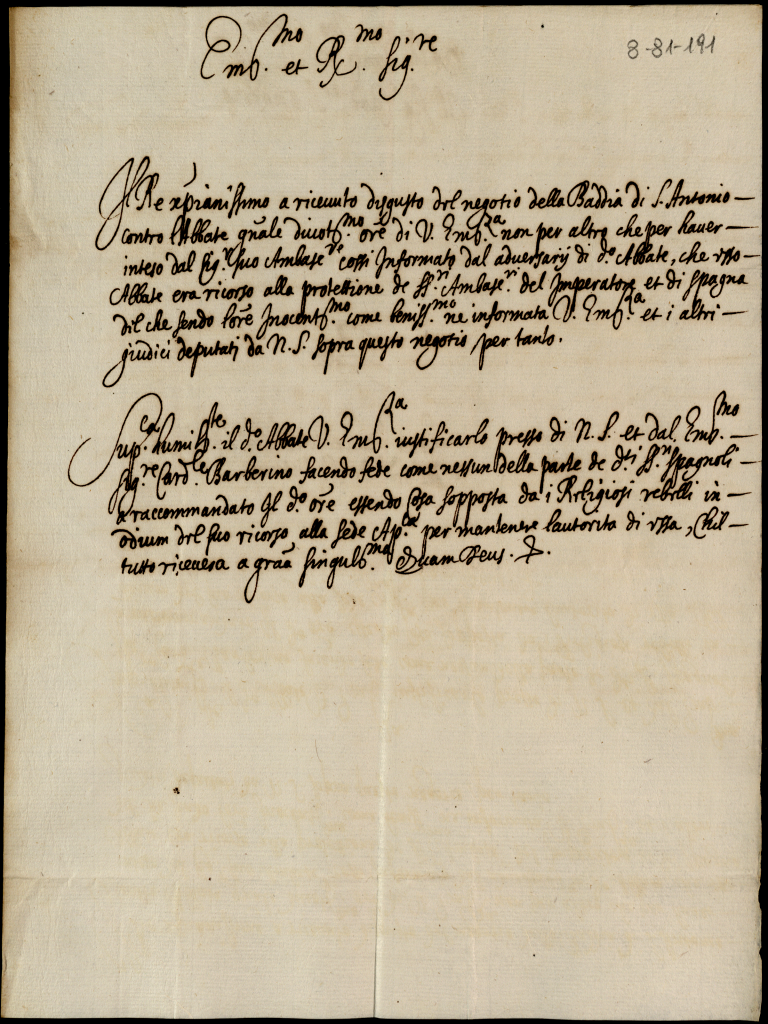 Em.mo et R.mo Sig.re
8-81-191
Il Re xp̄ianissimo a ricevuto disgusto del negotio della Baddia di S. Antonio —
contro l'Abbate quale divot.mo ōre di V. Em.za non per altro che per haver —
inteso dal Sig.r suo Ambas.re cossi Informato dal adversarij di d.o Abbate, che esso —
Abbate era ricorso alla protettione de SS.ri Ambas.ri del Imperatore et di Spagna
dil che sendo l'ōre Inocent.mo come beniss.mo ne informata V. Em.za et i altri —
giudici deputati da N. S. sopra questo negotio per tanto.
Sup.ca humilm.te il d.o Abbate V. Em.za iustificarlo presso di N. S. et dal Em.mo —
Sig.re Card.le Barberino facendo fede come nessun della parte de d.ti SS.ri Spagnoli —
a raccommandato Il d.o ōre essendo cosa sopposta da i Religiosi rebelli in —
odium del suo ricorso alla sede Ap.ca per mantenere lautorita di essa, Chil —
tutto ricevera a graā singul.ma Quam Deus.